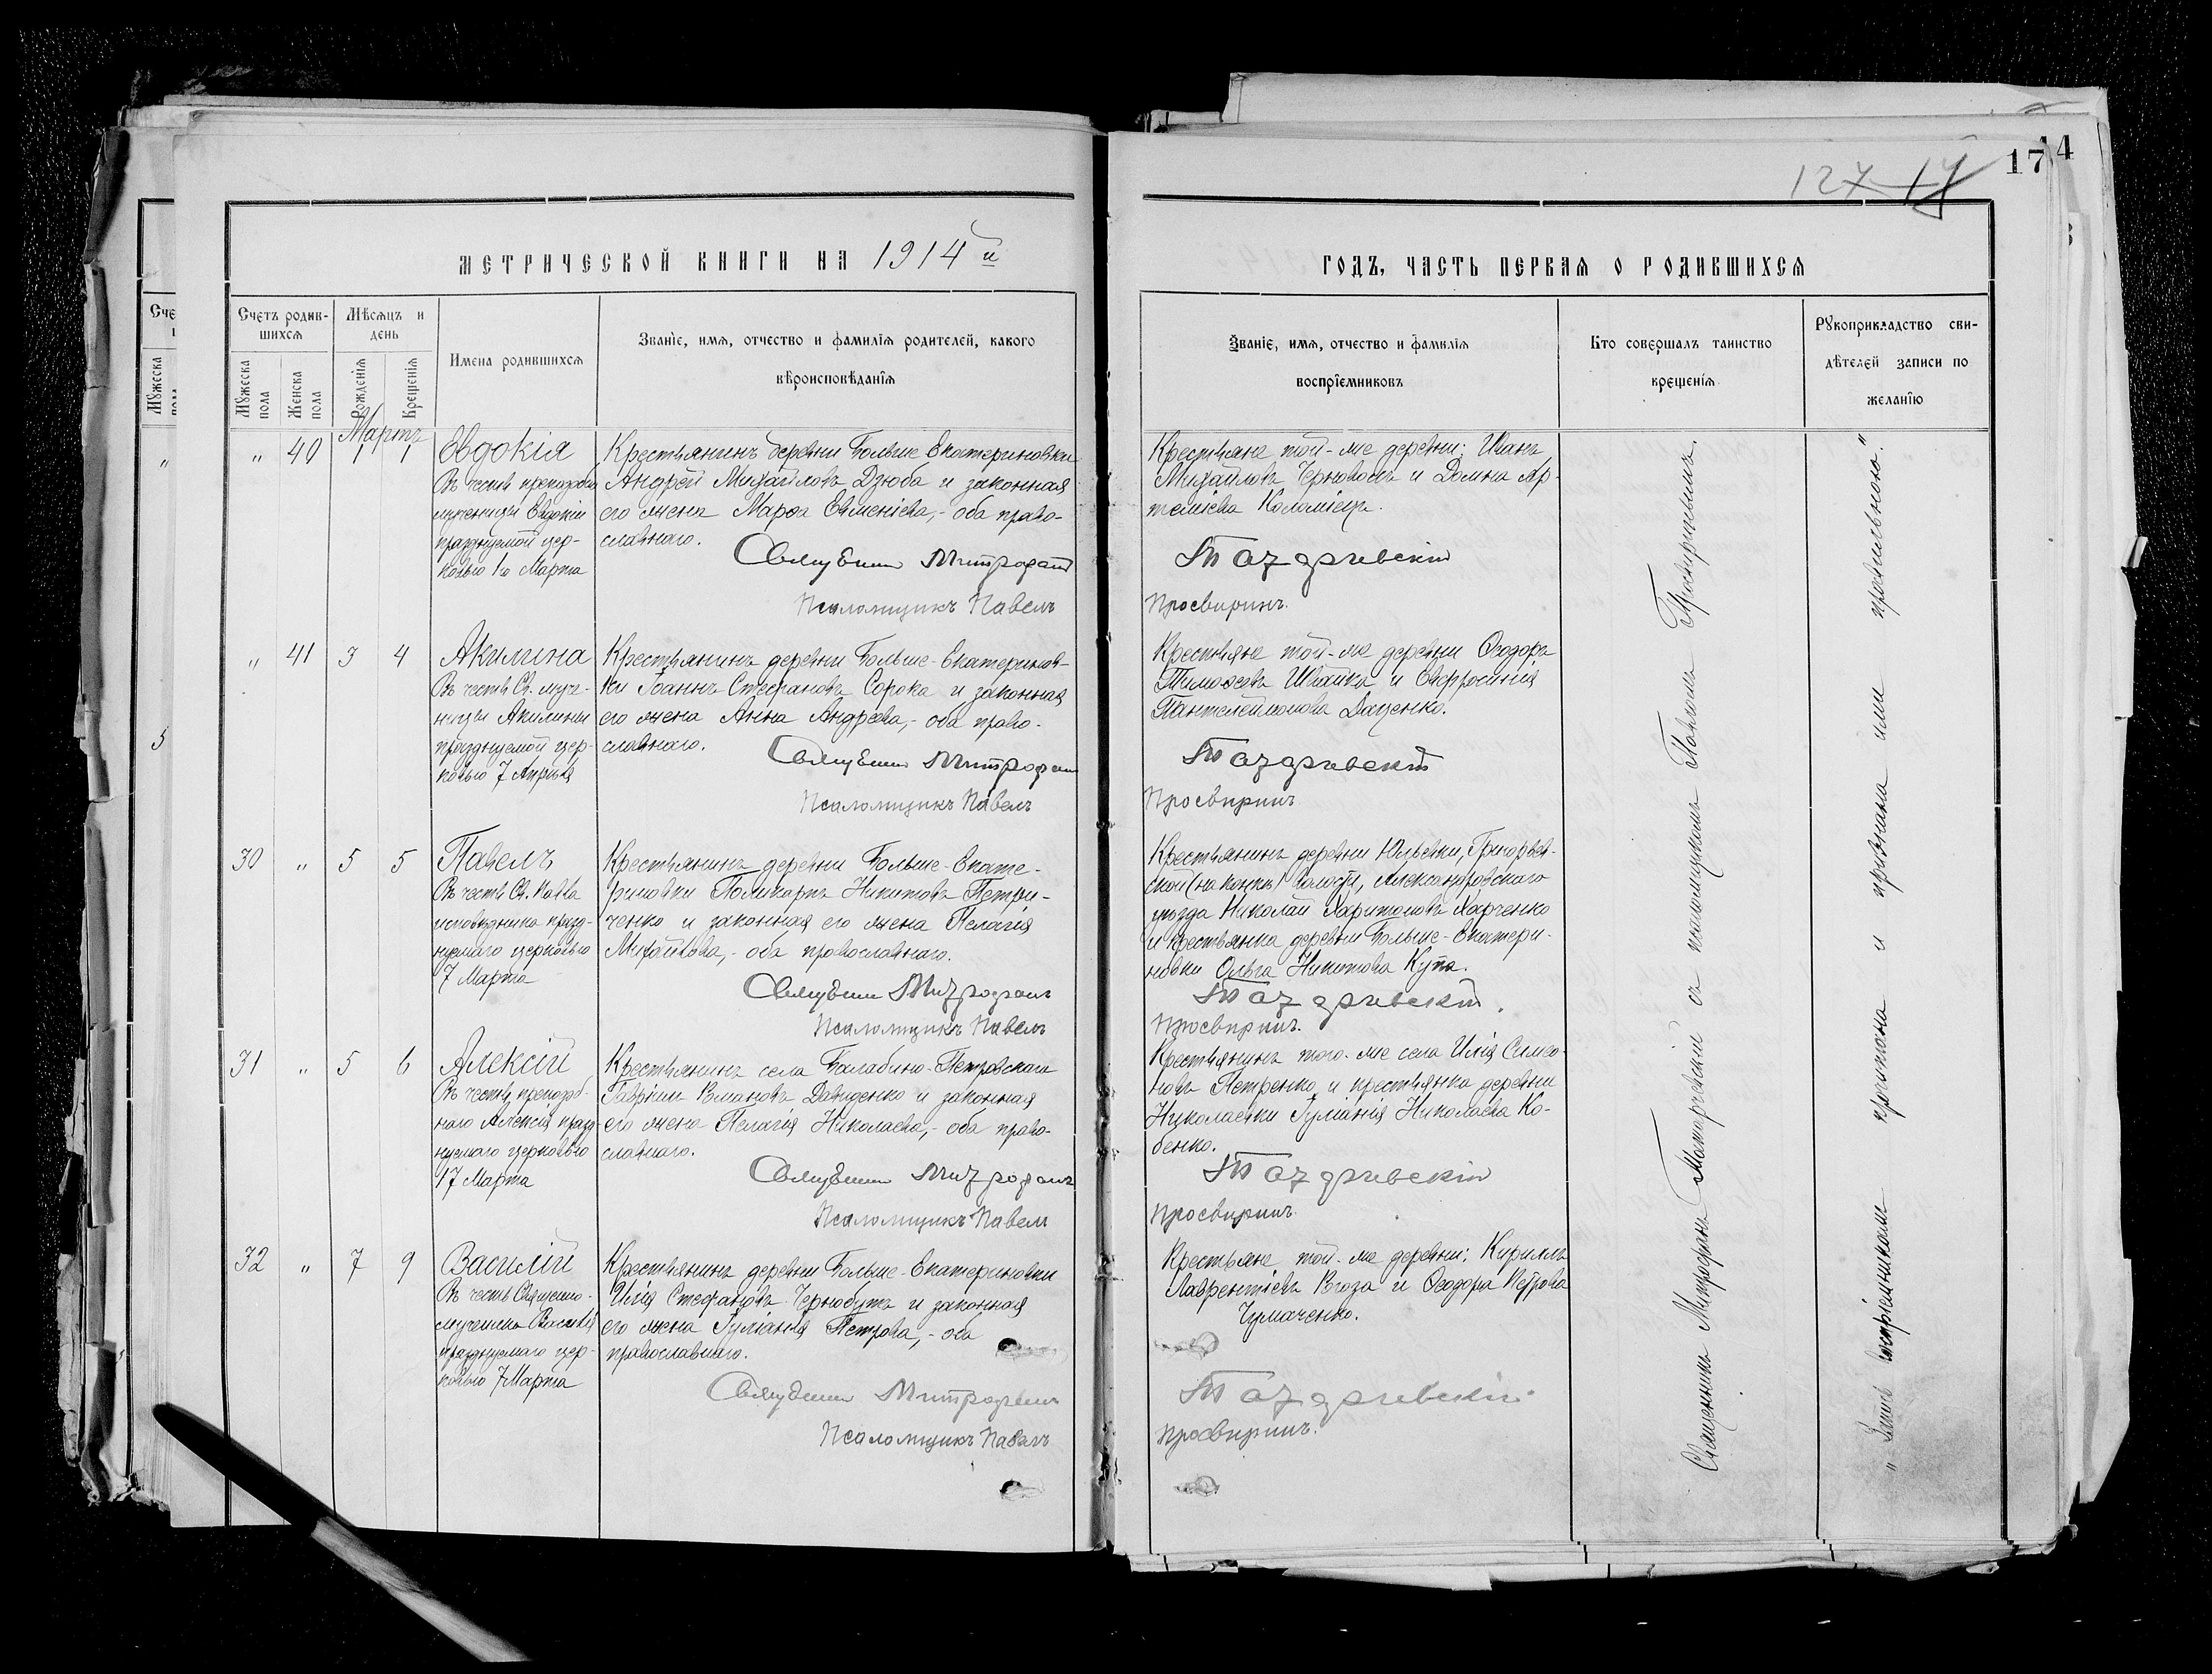 17 4
127 17
МЕТРИЧЕСКОЙ КНИГИ НА 1914й
ГОДЪ, ЧАСТЬ ПЕРВАЯ О РОДИВШИХСЯ
Счетъ родив-
шихся
Мужеска пола
Женска пола
Мѣсяцъ и
день
Рожденія
Крещенія
Имена родившихся
Званіе, имя, отчество и фамилія родителей, какого
вѣроисповѣданія
Званіе, имя, отчество и фамилія
воспріемниковъ
Кто совершалъ таинство
крещенія
Рукоприкладство сви-
дѣтелей записи по
желанію
Мартъ
" 40 1 1
Евдокія
Въ честь преподобно
мученицы Евдокіи
празднуемой цер-
ковью 1го Марта
Крестьянинъ деревни Больше Екатериновки
Андрей Михайловъ Дзюба и законная
его жена Марѳа Евменіева,- оба право-
славнаго.
Священникъ Митрофанъ
Псаломщикъ Павелъ
Крестьяне той-же деревни: Иванъ
Михайловъ Черноволъ и Домна Ар-
теміева Коломіецъ.
Просвиринъ.
" 41 3 4
Акилина
Въ честь Св. муче-
ницы Акилины
празднуемой цер-
ковью 7 Апрѣля
Крестьянинъ деревни Больше-Екатеринов-
ки Іоаннъ Стефановъ Сорока и законная
его жена Анна Андреева,- оба право-
славнаго.
Священникъ Митрофанъ
Псаломщикъ Павелъ
Крестьяне той-же деревни Ѳеодоръ
Тимоѳеевъ Швайка и Евфросинія
Пантелеймонова Даценко.
Просвиринъ
30 " 5 5
Павелъ
Въ честь Св. Павла
исповѣдника празд-
нуемаго церковью
7 Марта
Крестьянинъ деревни Больше-Екате-
риновки Поликарпъ Никитовъ Петри-
ченко и законная его жена Пелагія
Михайлова,- оба православнаго.
Священникъ Митрофанъ
Псаломщикъ Павелъ
Крестьянинъ деревни Юльевки, Григорьев-
ской волости, Александровскаго
уѣзда Николай Харитоновъ Харченко
и крестьянка деревни Больше-Екатери-
новки Ольга Никитова Купа.
Просвиринъ.
31 " 5 6
Алексій
Въ честь преподоб-
наго Алексія празд
нуемаго церковью
17 Марта
Крестьянинъ села Балабино-Петровскаго
Гавріилъ Романовъ Давиденко и законная
его жена Пелагія Николаева,- оба право-
славнаго.
Священникъ Митрофанъ
Псаломщикъ Павелъ
Крестьянинъ того-же села Илія Симео-
новъ Петренко и крестьянка деревни
Николаевки Іуліанія Николаева Ко-
бенко.
Просвиринъ.
32 " 7 9
Василій
Въ честь Священно-
мученика Василія
празднуемаго цер-
ковью 7 Марта
Крестьянинъ деревни Больше-Екатериновки
Илія Стефановъ и законная
его жена Іуліанія Петрова,- оба
православнаго.
Священникъ Митрофанъ
Псаломщикъ Павелъ
Крестьяне той-же деревни: Кириллъ
Лаврентіевъ и Ѳеодора Петрова
Чумаченко.
Просвиринъ.
Священникъ Митрофанъ съ псаломщикомъ Павломъ Просвиринымъ.
" Запись воспріемникамъ прочитана и признана ими правильною."
Счет
Мужеска пола
"
5